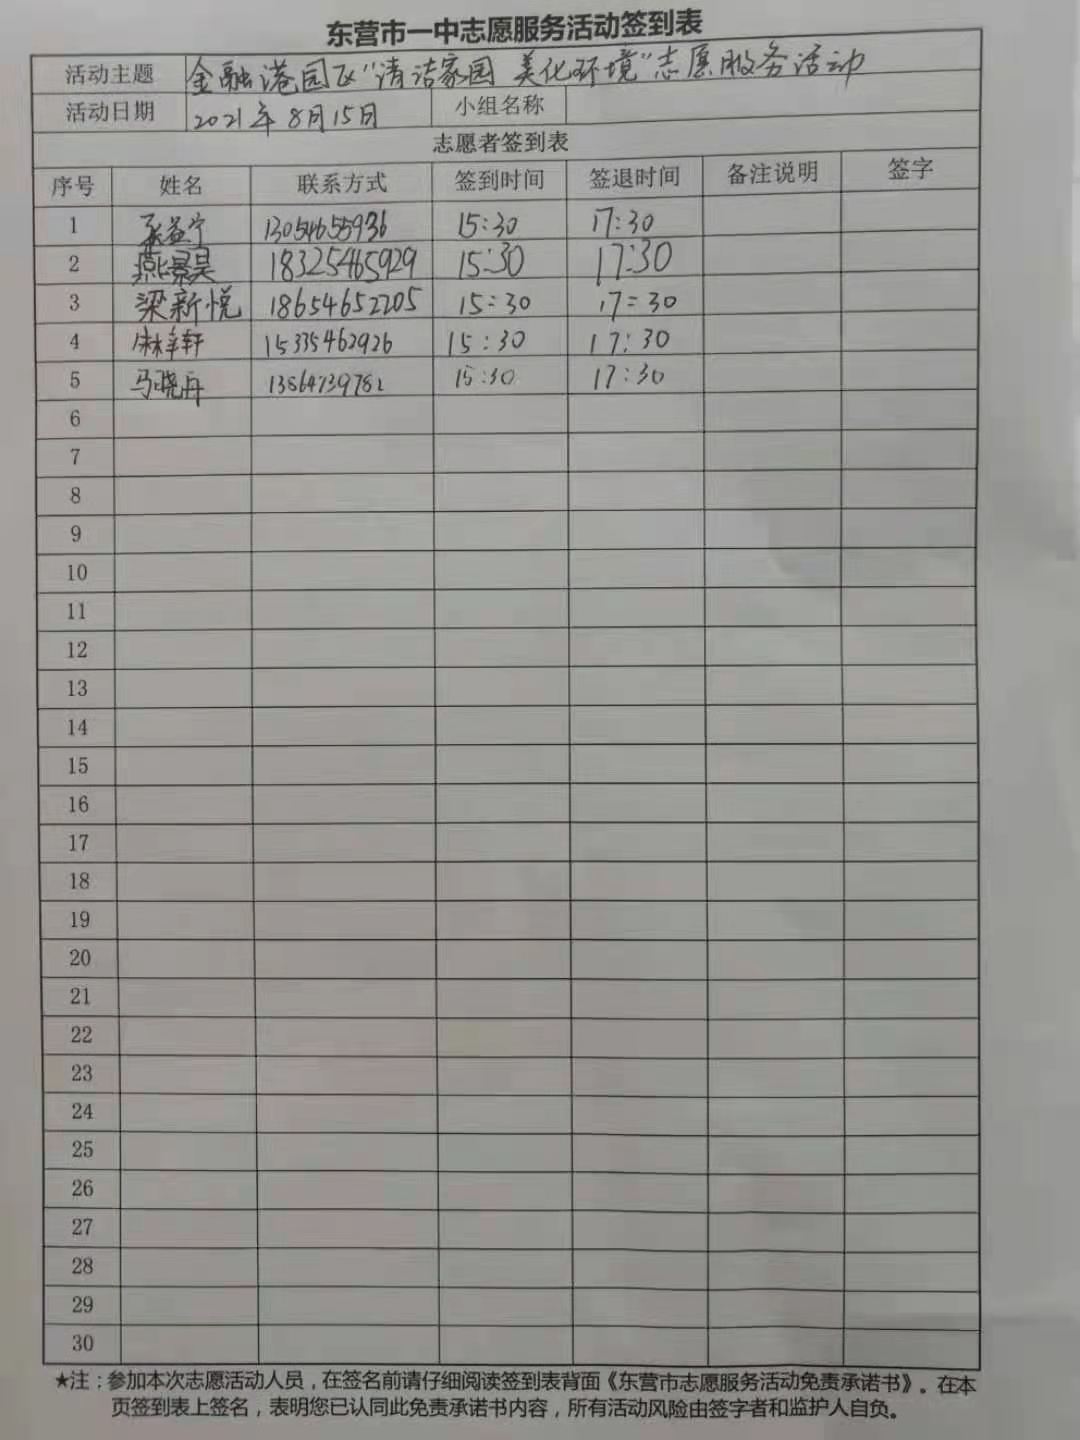 东营市一中志愿服务活动签到表
活动主题 金融港园区“清洁家园 美化环境”志愿服务活动
活动日期 2021年8月15日 小组名称
志愿者签到表
序号 姓名 联系方式 签到时间 签退时间 备注说明 签字
1 13054655936 15:30 17:30
2 燕景昊 18325465929 15:30 17:30
3 梁新悦 18654652205 15:30 17:30
4 15335462926 15:30 17:30
5 马晓丹 15:30 17:30
6
7
8
9
10
11
12
13
14
15
16
17
18
19
20
21
22
23
24
25
26
27
28
29
30
★注：参加本次志愿活动人员，在签名前请仔细阅读签到表背面《东营市志愿服务活动免责承诺书》。在本
页签到表上签名，表明您已认同此免责承诺书内容，所有活动风险由签字者和监护人自负。